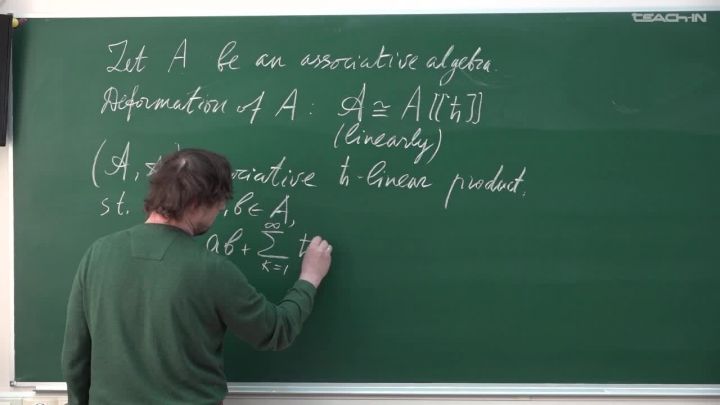 TEACH-IN
Let A be an associative algebra.
Deformation of A : A ≅ A[[ħ]]
(linearly)
(A, ciative ħ-linear product,
st. , b ∈ A,
ab + ∞ Σ k=1